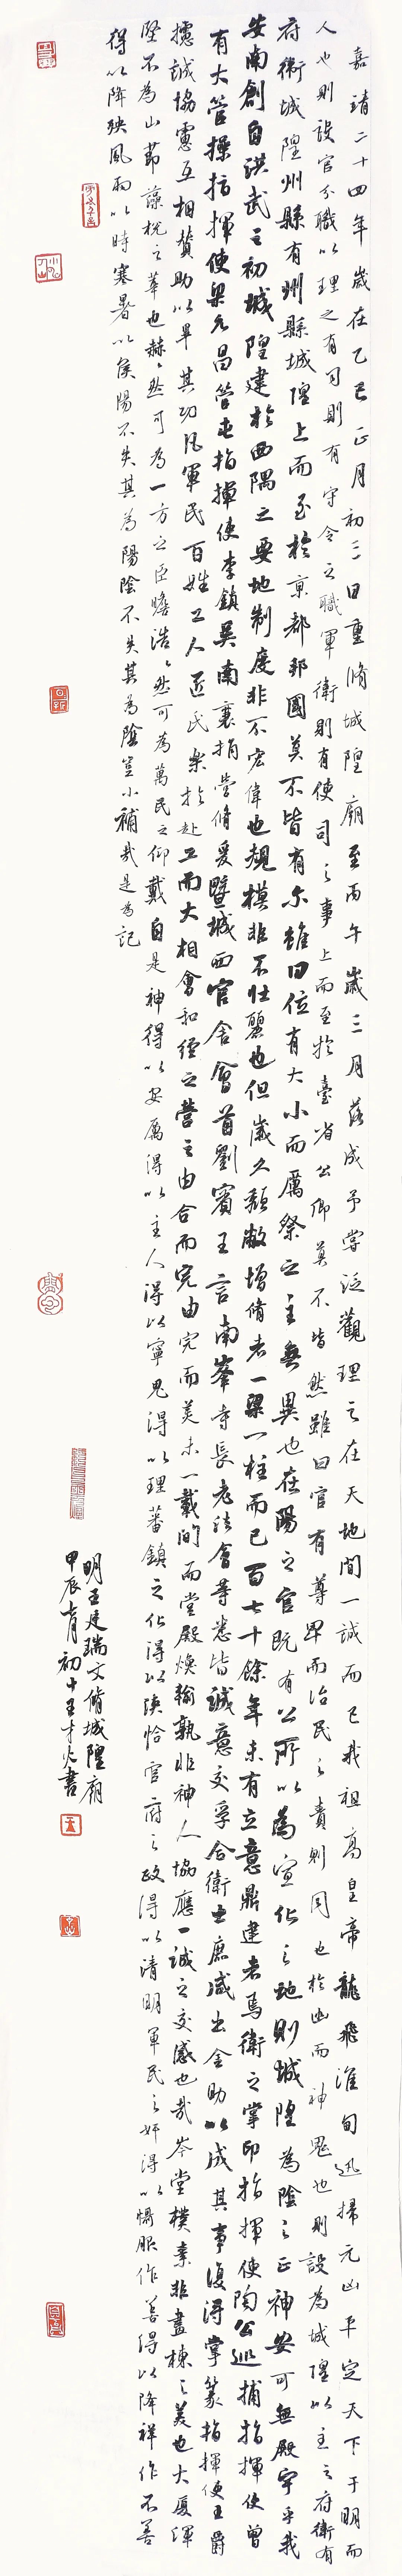 嘉靖二十四年歲在乙巳正月初三日重脩城隍廟至丙午歲三月落成予嘗泛觀理之在天地間一誠而已我祖高皇帝龍飛淮甸迅掃元凶平定天下于明而
人也則設官分職以理之有司則有守令之職軍衛則有使司之事上而至於臺省公卿莫不皆然雖曰官有尊卑而治民之責則同也於幽而神鬼也則設為城隍以主之府衛有
府衛城隍州縣有州縣城隍上而至於京都邦國莫不皆有尔雖曰位有大小而厲祭之主無異也在陽之官既有公所以為宣化之地則城隍為陰之正神安可無殿宇乎我
安南創自洪武之初城隍建於西隅之要地制度非不宏偉也規模非不壯麗也但歲久頹敝增脩者一梁一柱而已百七十餘年未有立意鼎建者焉衛之掌印指揮使陶公巡捕指揮使曾
有大管操指揮使梁允昌管屯指揮使李鎮吳南襄捐營脩爰暨城西官舍會首劉賓王言南峯寺長老法會等悉皆誠意交孚合衛士庶咸出金助以成其事復得掌篆指揮使王爵
攄誠協慮互相贊助以畢其功凡軍民百姓工人匠氏樂於赴工而大相會和經之營之由合而完由完而美未一載間而堂殿煥輪孰非神人協應一誠之交感也哉岑堂樸素非畫棟之美也大厦渾
堅不為山節藻梲之華也赫〻然可為一方之巨瞻浩〻然可為萬民之仰戴自是神得以安厲得以主人得以寧鬼得以理蕃鎮之化得以浹恰官府之政得以清明軍民之奸得以懾服作善得以降祥作不善
得以降殃風雨以時寒暑以候陽不失其為陽陰不失其為陰豈小補哉是為記
明王廷瑞文脩城隍廟
甲辰十月初十王才火書